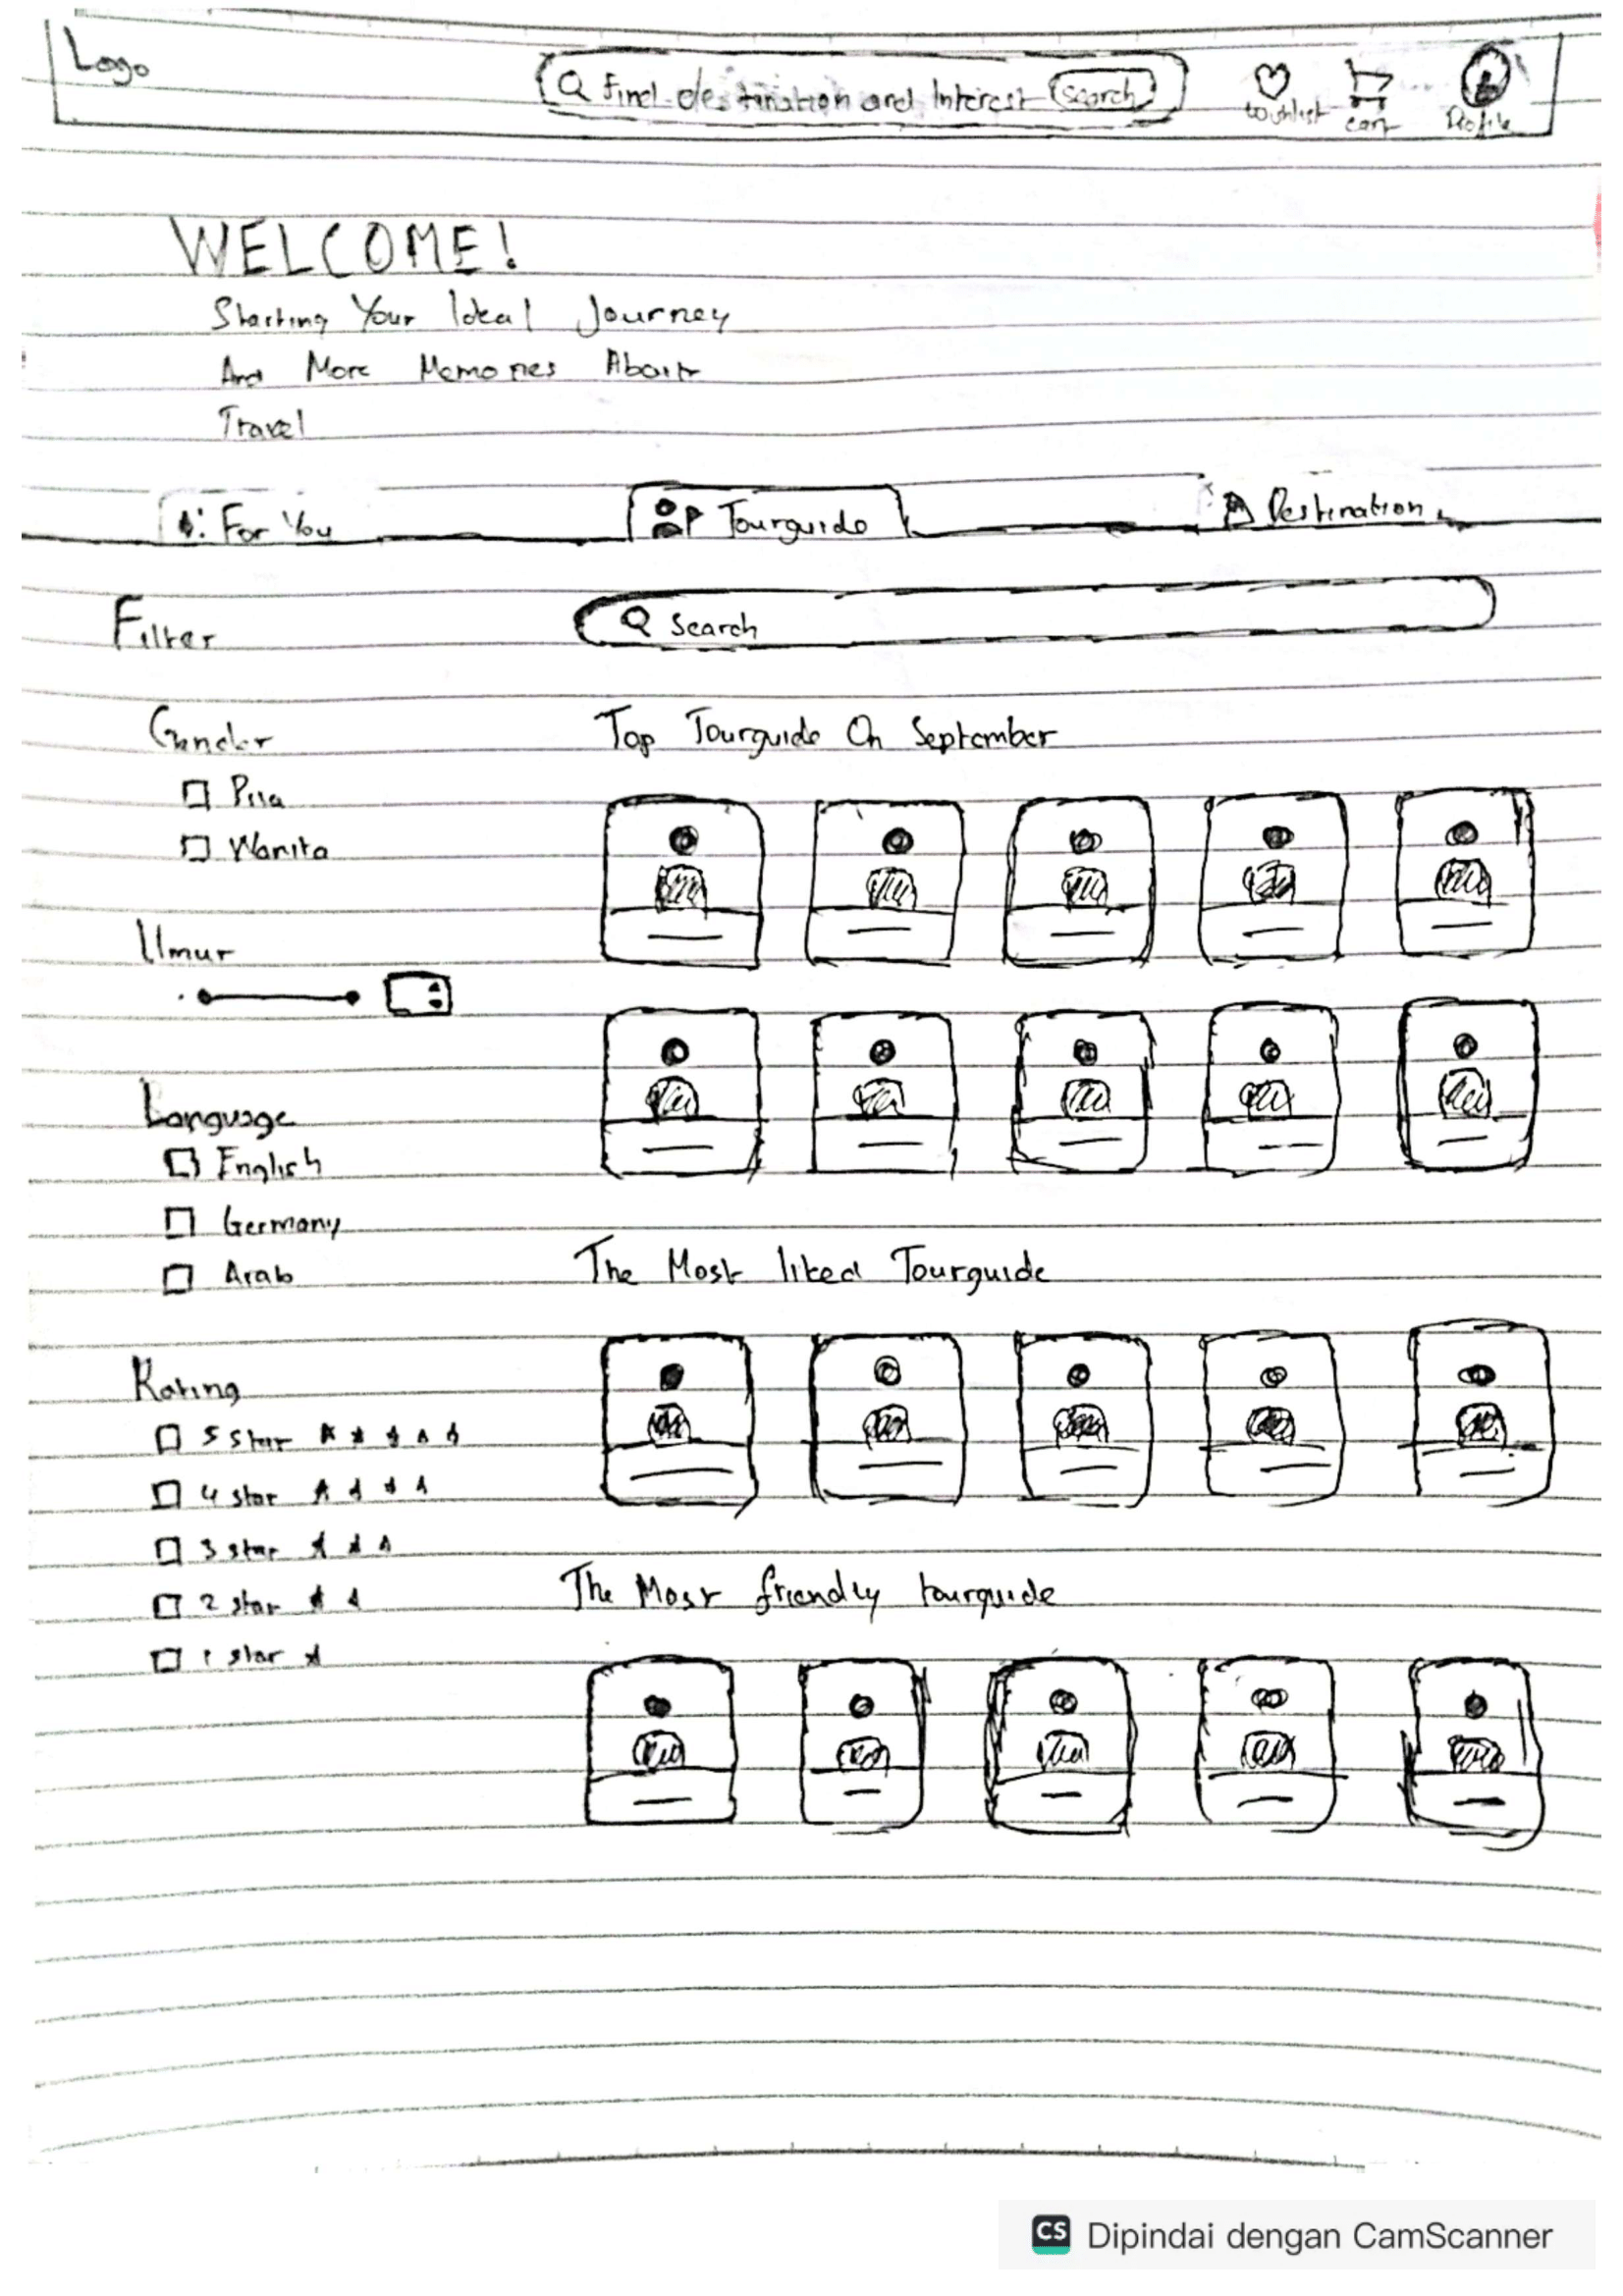 Logo
Find destination and Interest search
wishlist cart Profile
WELCOME!
Starting Your Ideal Journey
And More Memories About
Travel
For You Tourguide Destination
Filter
Search
Gender
Pria
Wanita
Umur
Language
English
Germany
Arab
Rating
5 Star
4 star
3 star
2 star
1 star
Top Tourguide On September
The Most liked Tourguide
The Most friendly tourguide
CS Dipindai dengan CamScanner